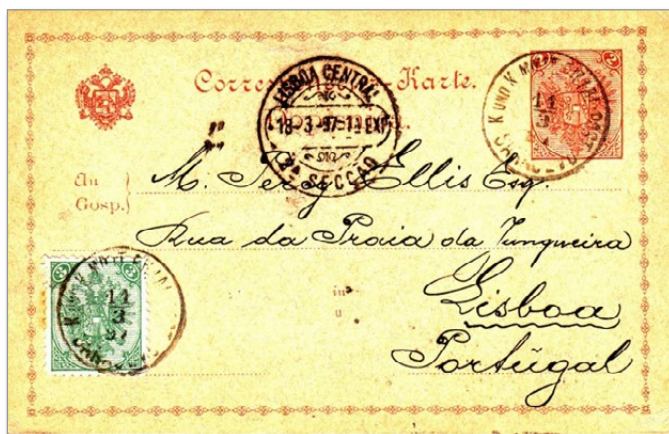 2
Correspondenz-Karte.
LISBOA CENTRAL
18-3-97-1ª EXP
2ª SECCAO
K UND K MILIT
11
3
An
Gosp.
M. Percy Ellis Esq.
Rua da Praia da Junqueira
in
u
Lisboa
Portugal
3
3
K UND K MILIT
11
3
97